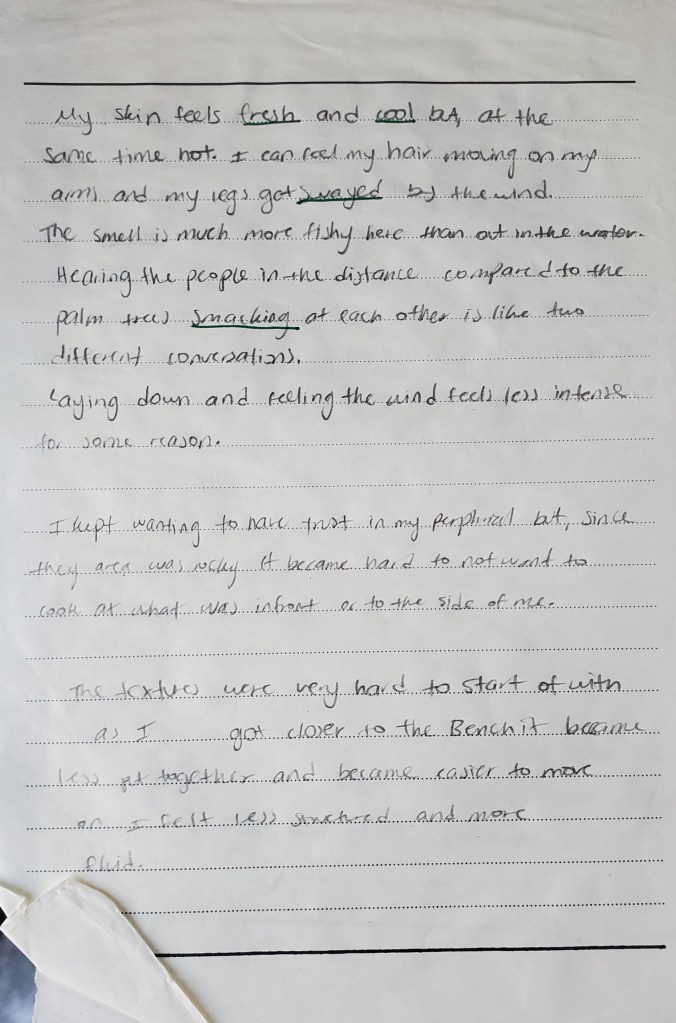 My skin feels fresh and cool but, at the
same time hot. I can feel my hair moving on my
arms and my legs got swayed by the wind.
The smell is much more fishy here than out in the water.
Hearing the people in the distance compared to the
palm trees smacking at each other is like two
different conversations.
Laying down and feeling the wind feels less intense
for some reason.
I kept wanting to have trust in my but, since
they area was rocky it became hard to not want to
look at what was infront or to the side of me.
The textures were very hard to start of with
as I got closer to the Bench it became
less together and became easier to move
on I felt less structured and more
fluid.